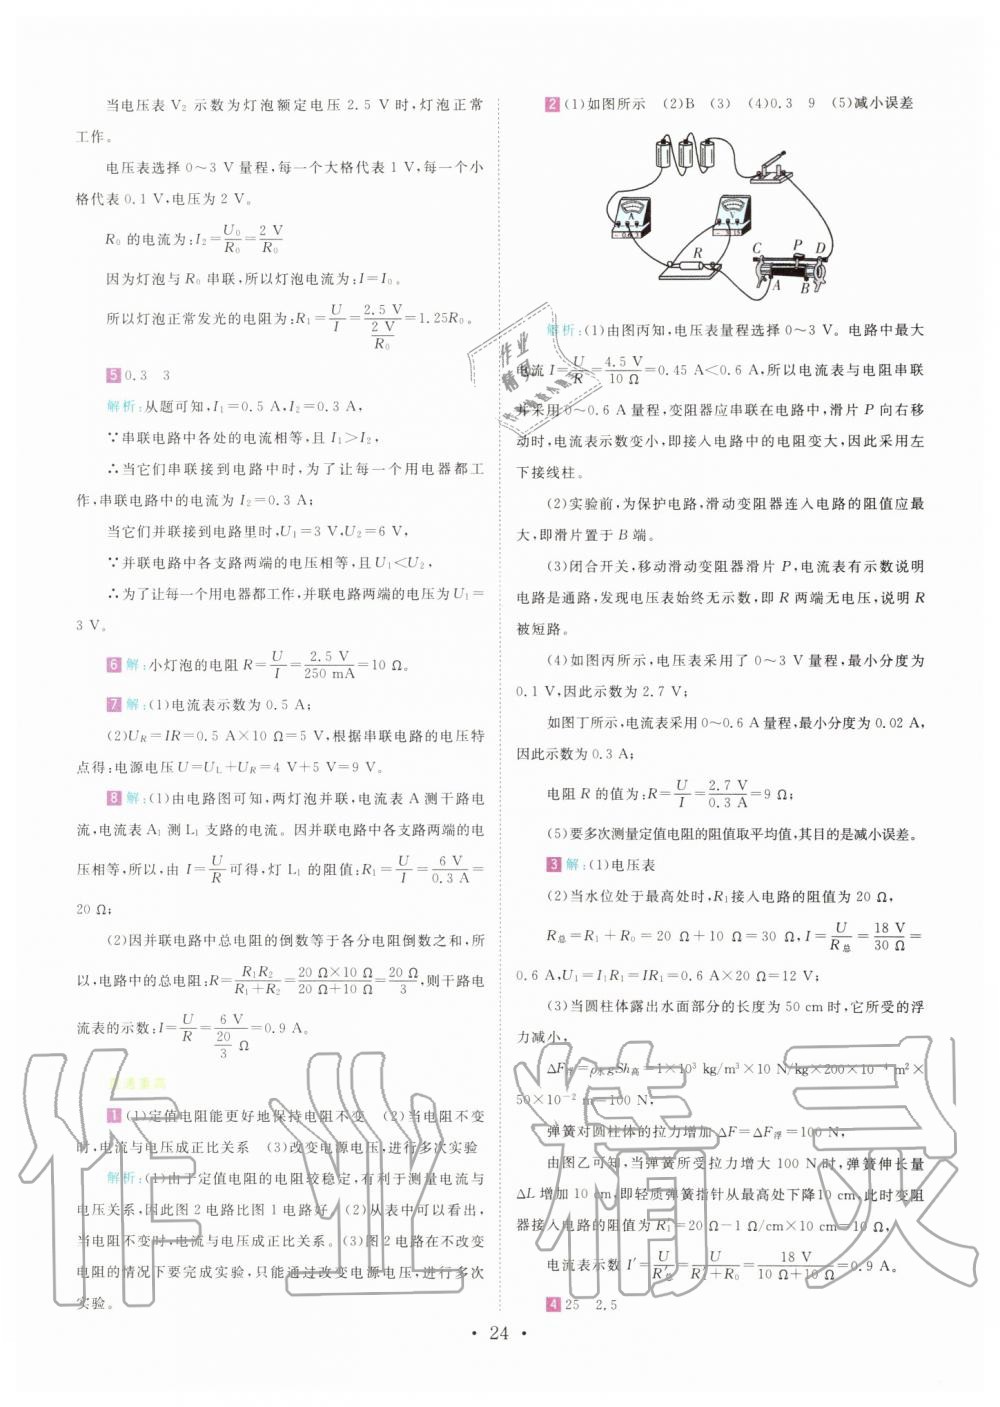 当电压表 V₂ 示数为灯泡额定电压 2.5 V 时,灯泡正常
工作。
电压表选择 0～3 V 量程,每一个大格代表 1 V,每一个小
格代表 0.1 V,电压为 2 V。
R₀ 的电流为:I₂=U₀/R₀=2 V/R₀
因为灯泡与 R₀ 串联,所以灯泡电流为:I=I₀。
所以灯泡正常发光的电阻为:R₁=U/I=2.5 V/(2 V/R₀)=1.25R₀。
5 0.3 3
解析:从题可知,I₁=0.5 A,I₂=0.3 A,
∵串联电路中各处的电流相等,且 I₁>I₂,
∴当它们串联接到电路中时,为了让每一个用电器都工
作,串联电路中的电流为 I₂=0.3 A;
当它们并联接到电路里时,U₁=3 V,U₂=6 V,
∵并联电路中各支路两端的电压相等,且 U₁<U₂,
∴为了让每一个用电器都工作,并联电路两端的电压为 U₁=
3 V。
6 解:小灯泡的电阻 R=U/I=2.5 V/250 mA=10 Ω。
7 解:(1)电流表示数为 0.5 A;
(2)U_R=IR=0.5 A×10 Ω=5 V,根据串联电路的电压特
点得:电源电压 U=U_L+U_R=4 V+5 V=9 V。
8 解:(1)由电路图可知,两灯泡并联,电流表 A 测干路电
流,电流表 A₁ 测 L₁ 支路的电流。因并联电路中各支路两端的电
压相等,所以,由 I=U/R 可得,灯 L₁ 的阻值:R₁=U/I=6 V/0.3 A=
20 Ω;
(2)因并联电路中总电阻的倒数等于各分电阻倒数之和,所
以,电路中的总电阻:R=R₁R₂/(R₁+R₂)=(20 Ω×10 Ω)/(20 Ω+10 Ω)=20 Ω/3,则干路电
流表的示数:I=U/R=6 V/(20/3 Ω)=0.9 A。
直通重高
1 (1)定值电阻能更好地保持电阻不变 (2)当电阻不变
时,电流与电压成正比关系 (3)改变电源电压,进行多次实验
解析:(1)由于定值电阻的电阻较稳定,有利于测量电流与
电压关系,因此图 2 电路比图 1 电路好。(2)从表中可以看出,
当电阻不变时,电流与电压成正比关系。(3)图 2 电路在不改变
电阻的情况下要完成实验,只能通过改变电源电压,进行多次
实验。
2 (1)如图所示 (2)B (3) (4)0.3 9 (5)减小误差
A
V
C P D
R
A B
解析:(1)由图丙知,电压表量程选择 0～3 V。电路中最大
电流 I=U/R=4.5 V/10 Ω=0.45 A<0.6 A,所以电流表与电阻串联
并采用 0～0.6 A 量程,变阻器应串联在电路中,滑片 P 向右移
动时,电流表示数变小,即接入电路中的电阻变大,因此采用左
下接线柱。
(2)实验前,为保护电路,滑动变阻器连入电路的阻值应最
大,即滑片置于 B 端。
(3)闭合开关,移动滑动变阻器滑片 P,电流表有示数说明
电路是通路,发现电压表始终无示数,即 R 两端无电压,说明 R
被短路。
(4)如图丙所示,电压表采用了 0～3 V 量程,最小分度为
0.1 V,因此示数为 2.7 V;
如图丁所示,电流表采用 0～0.6 A 量程,最小分度为 0.02 A,
因此示数为 0.3 A;
电阻 R 的值为:R=U/I=2.7 V/0.3 A=9 Ω;
(5)要多次测量定值电阻的阻值取平均值,其目的是减小误差。
3 解:(1)电压表
(2)当水位处于最高处时,R₁接入电路的阻值为 20 Ω,
R总=R₁+R₀=20 Ω+10 Ω=30 Ω,I=U/R总=18 V/30 Ω=
0.6 A,U₁=I₁R₁=IR₁=0.6 A×20 Ω=12 V;
(3)当圆柱体露出水面部分的长度为 50 cm时,它所受的浮
力减小,
ΔF浮=ρ水gSh高=1×10³ kg/m³×10 N/kg×200×10⁻⁴ m²×
50×10⁻² m=100 N,
弹簧对圆柱体的拉力增加 ΔF=ΔF浮=100 N,
由图乙可知,当弹簧所受拉力增大 100 N时,弹簧伸长量
ΔL 增加 10 cm,即轻质弹簧指针从最高处下降10 cm,此时变阻
器接入电路的阻值为 R₁′=20 Ω-1 Ω/cm×10 cm=10 Ω,
电流表示数 I′=U/R总′=U/(R₁′+R₀)=18 V/(10 Ω+10 Ω)=0.9 A。
4 25 2.5
• 24 •
作业精灵
作业
精灵